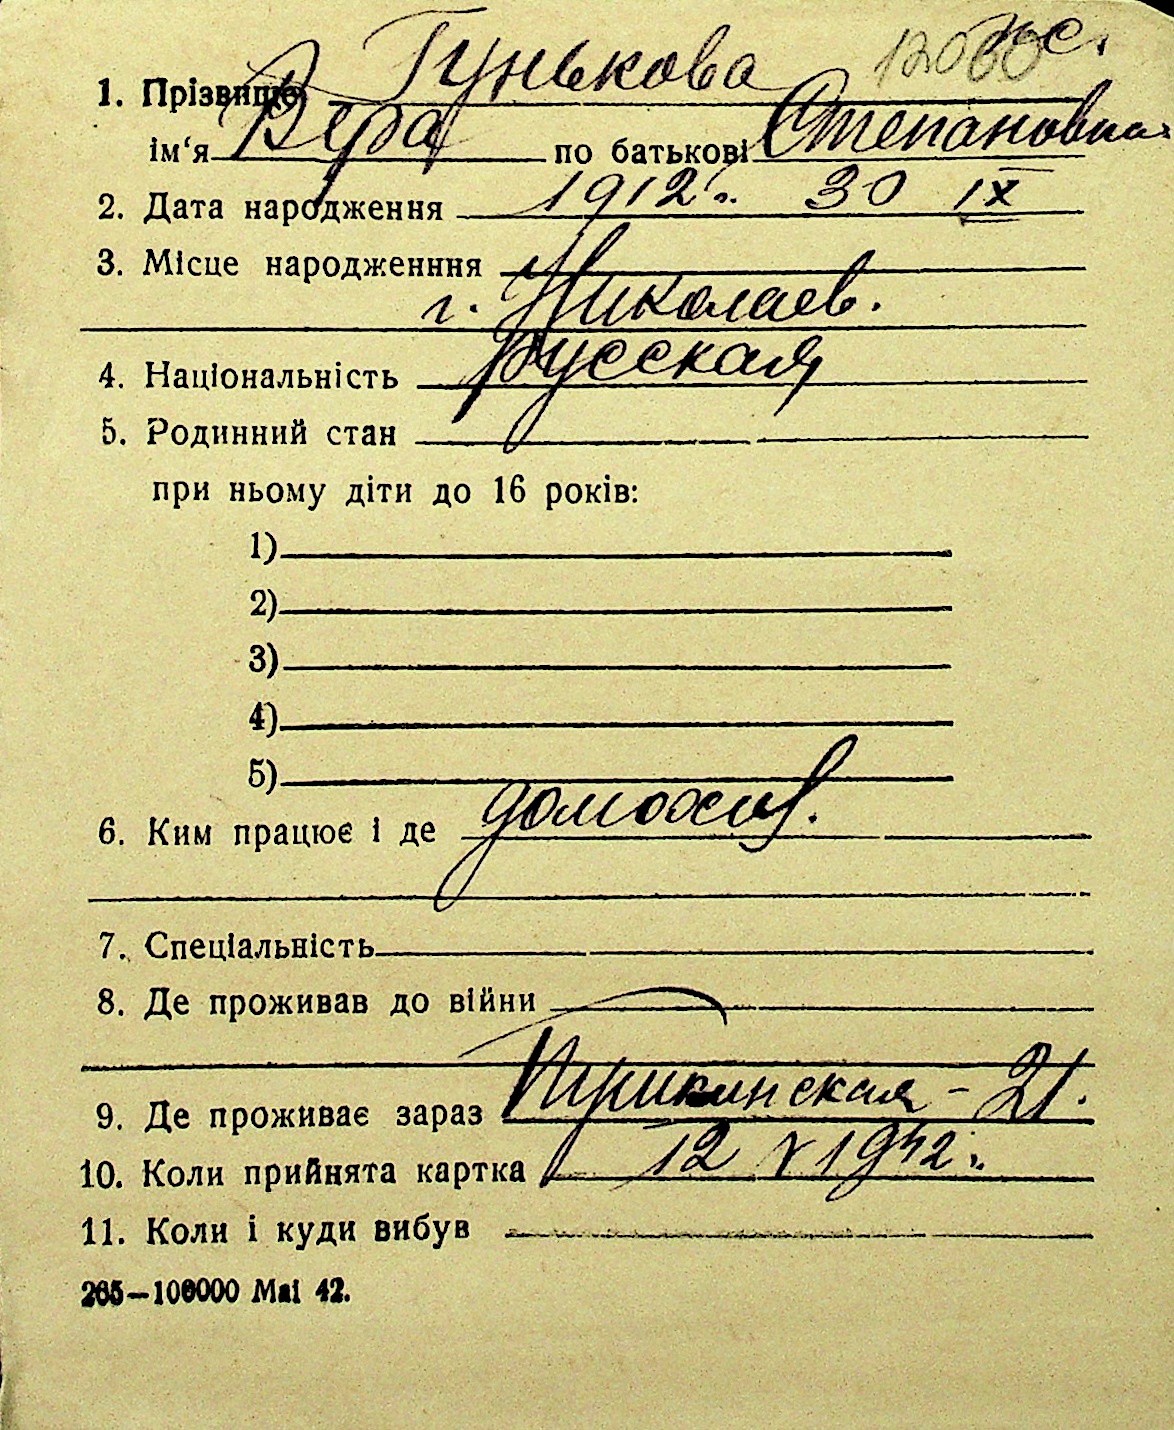 1. Прізвище Гунькова
ім‘я Вера по батькові Степановна
2. Дата народження 1912 г. 30 IX
3. Місце народженння
г. Николаев.
4. Національність русская
5. Родинний стан
при ньому діти до 16 років:
1)
2)
3)
4)
5)
6. Ким працює і де домохоз.
7. Спеціальність
8. Де проживав до війни
9. Де проживає зараз - 21.
10. Коли прийнята картка 12 V 1942 г.
11. Коли і куди вибув
265—100000 Mai 42.